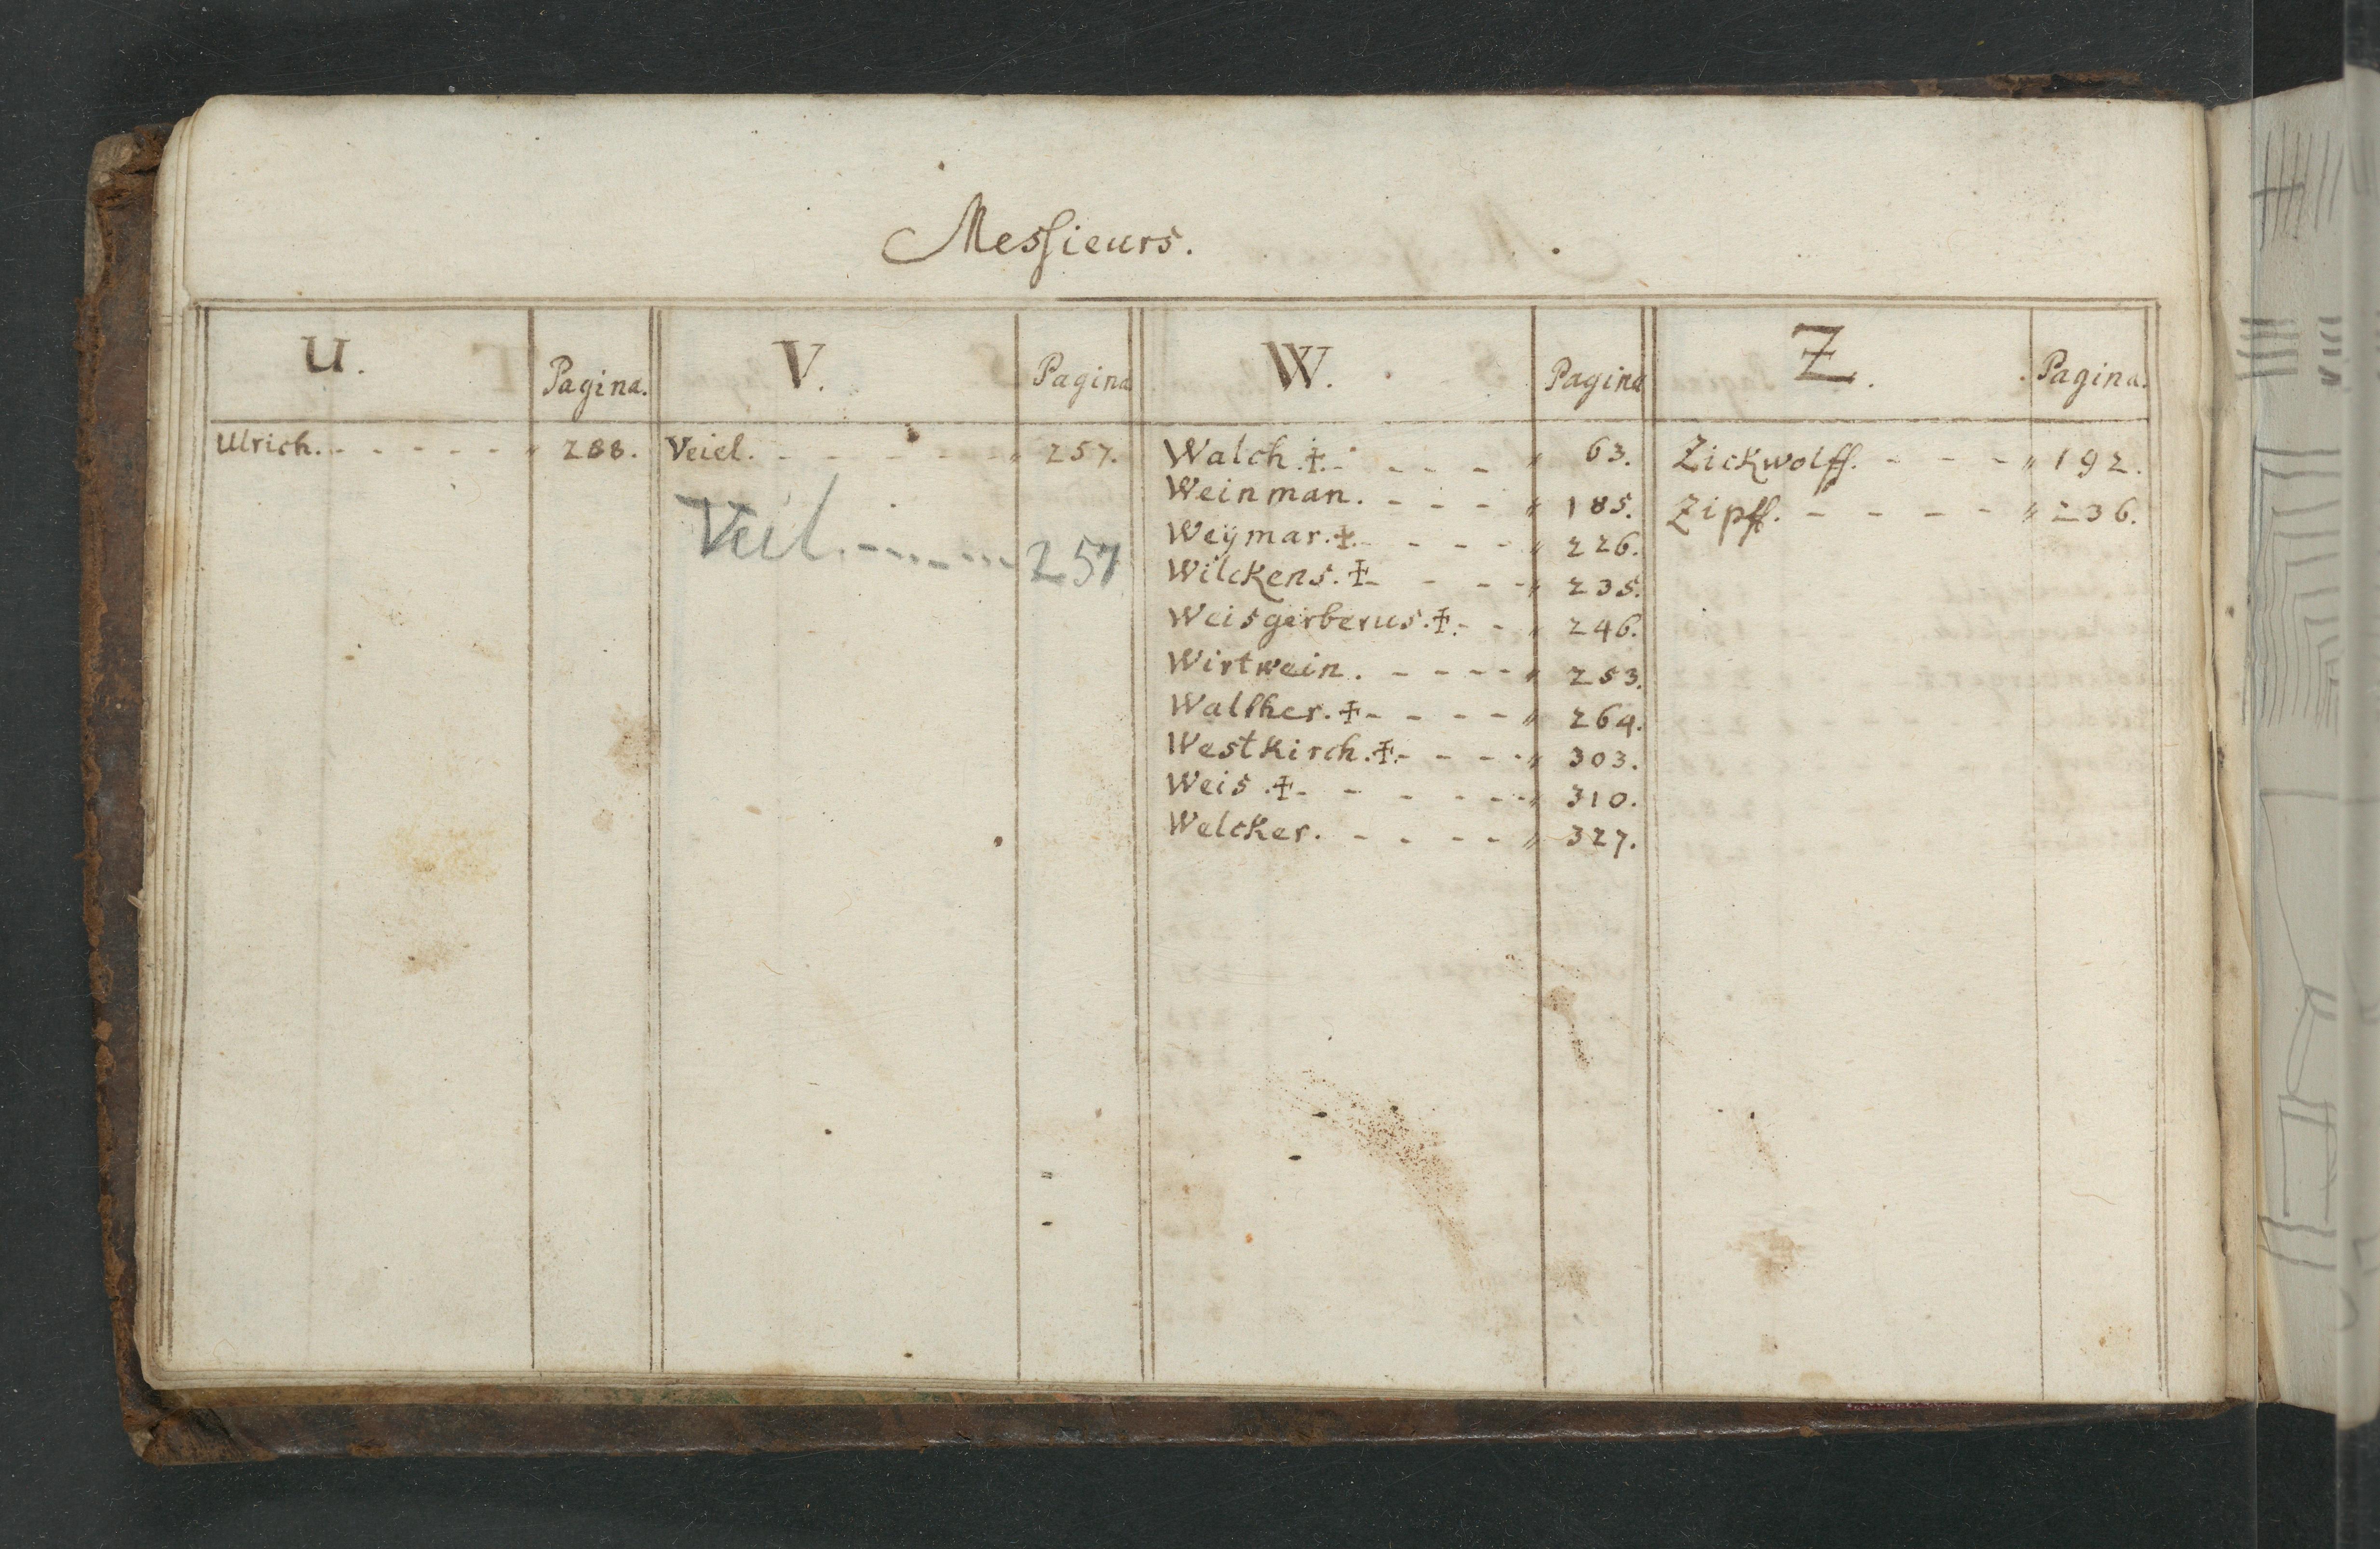 Messieurs.
U. Pagina. V. Pagina W. Pagina Z. Pagina.
Ulrich. - - - - - " 288. Veiel. - - - - - - " 257. Walch. ‡. - - - - " 63. Zickwolff. - - - " 192.
Weinman. - - - - " 185. Zipff. - - - - - " 236.
Veil. - - - - - - 257 Weÿmar. ‡. - - - - " 226.
Wilckens. ‡ - - - - " 235.
Weisgerberus. ‡. - - " 246.
Wirtwein. - - - - " 253.
Walther. ‡ - - - - " 264.
Westkirch. ‡. - - - - " 303.
Weis. ‡ - - - - - - " 310.
Welcker. - - - - " 327.